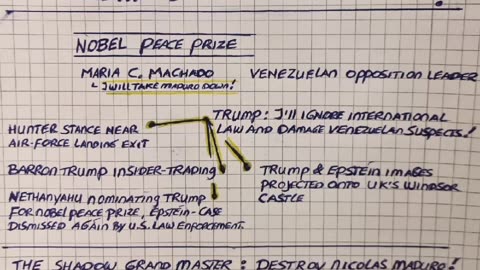 NOBEL PEACE PRIZE
MARIA C. MACHADO VENEZUELAN OPPOSITION LEADER
I WILL TAKE MADURO DOWN!
TRUMP: I'LL IGNORE INTERNATIONAL
LAW AND DAMAGE VENEZUELAN SUSPECTS!
HUNTER STANCE NEAR
AIR-FORCE LANDING EXIT
BARRON TRUMP INSIDER-TRADING
TRUMP & EPSTEIN IMAGES
PROJECTED ONTO UK'S WINDSOR
CASTLE
NETHANYAHU NOMINATING TRUMP
FOR NOBEL PEACE PRIZE, EPSTEIN-CASE
DISMISSED AGAIN BY U.S. LAW ENFORCEMENT.
THE SHADOW GRAND MASTER: DESTROY NICOLAS MADURO!